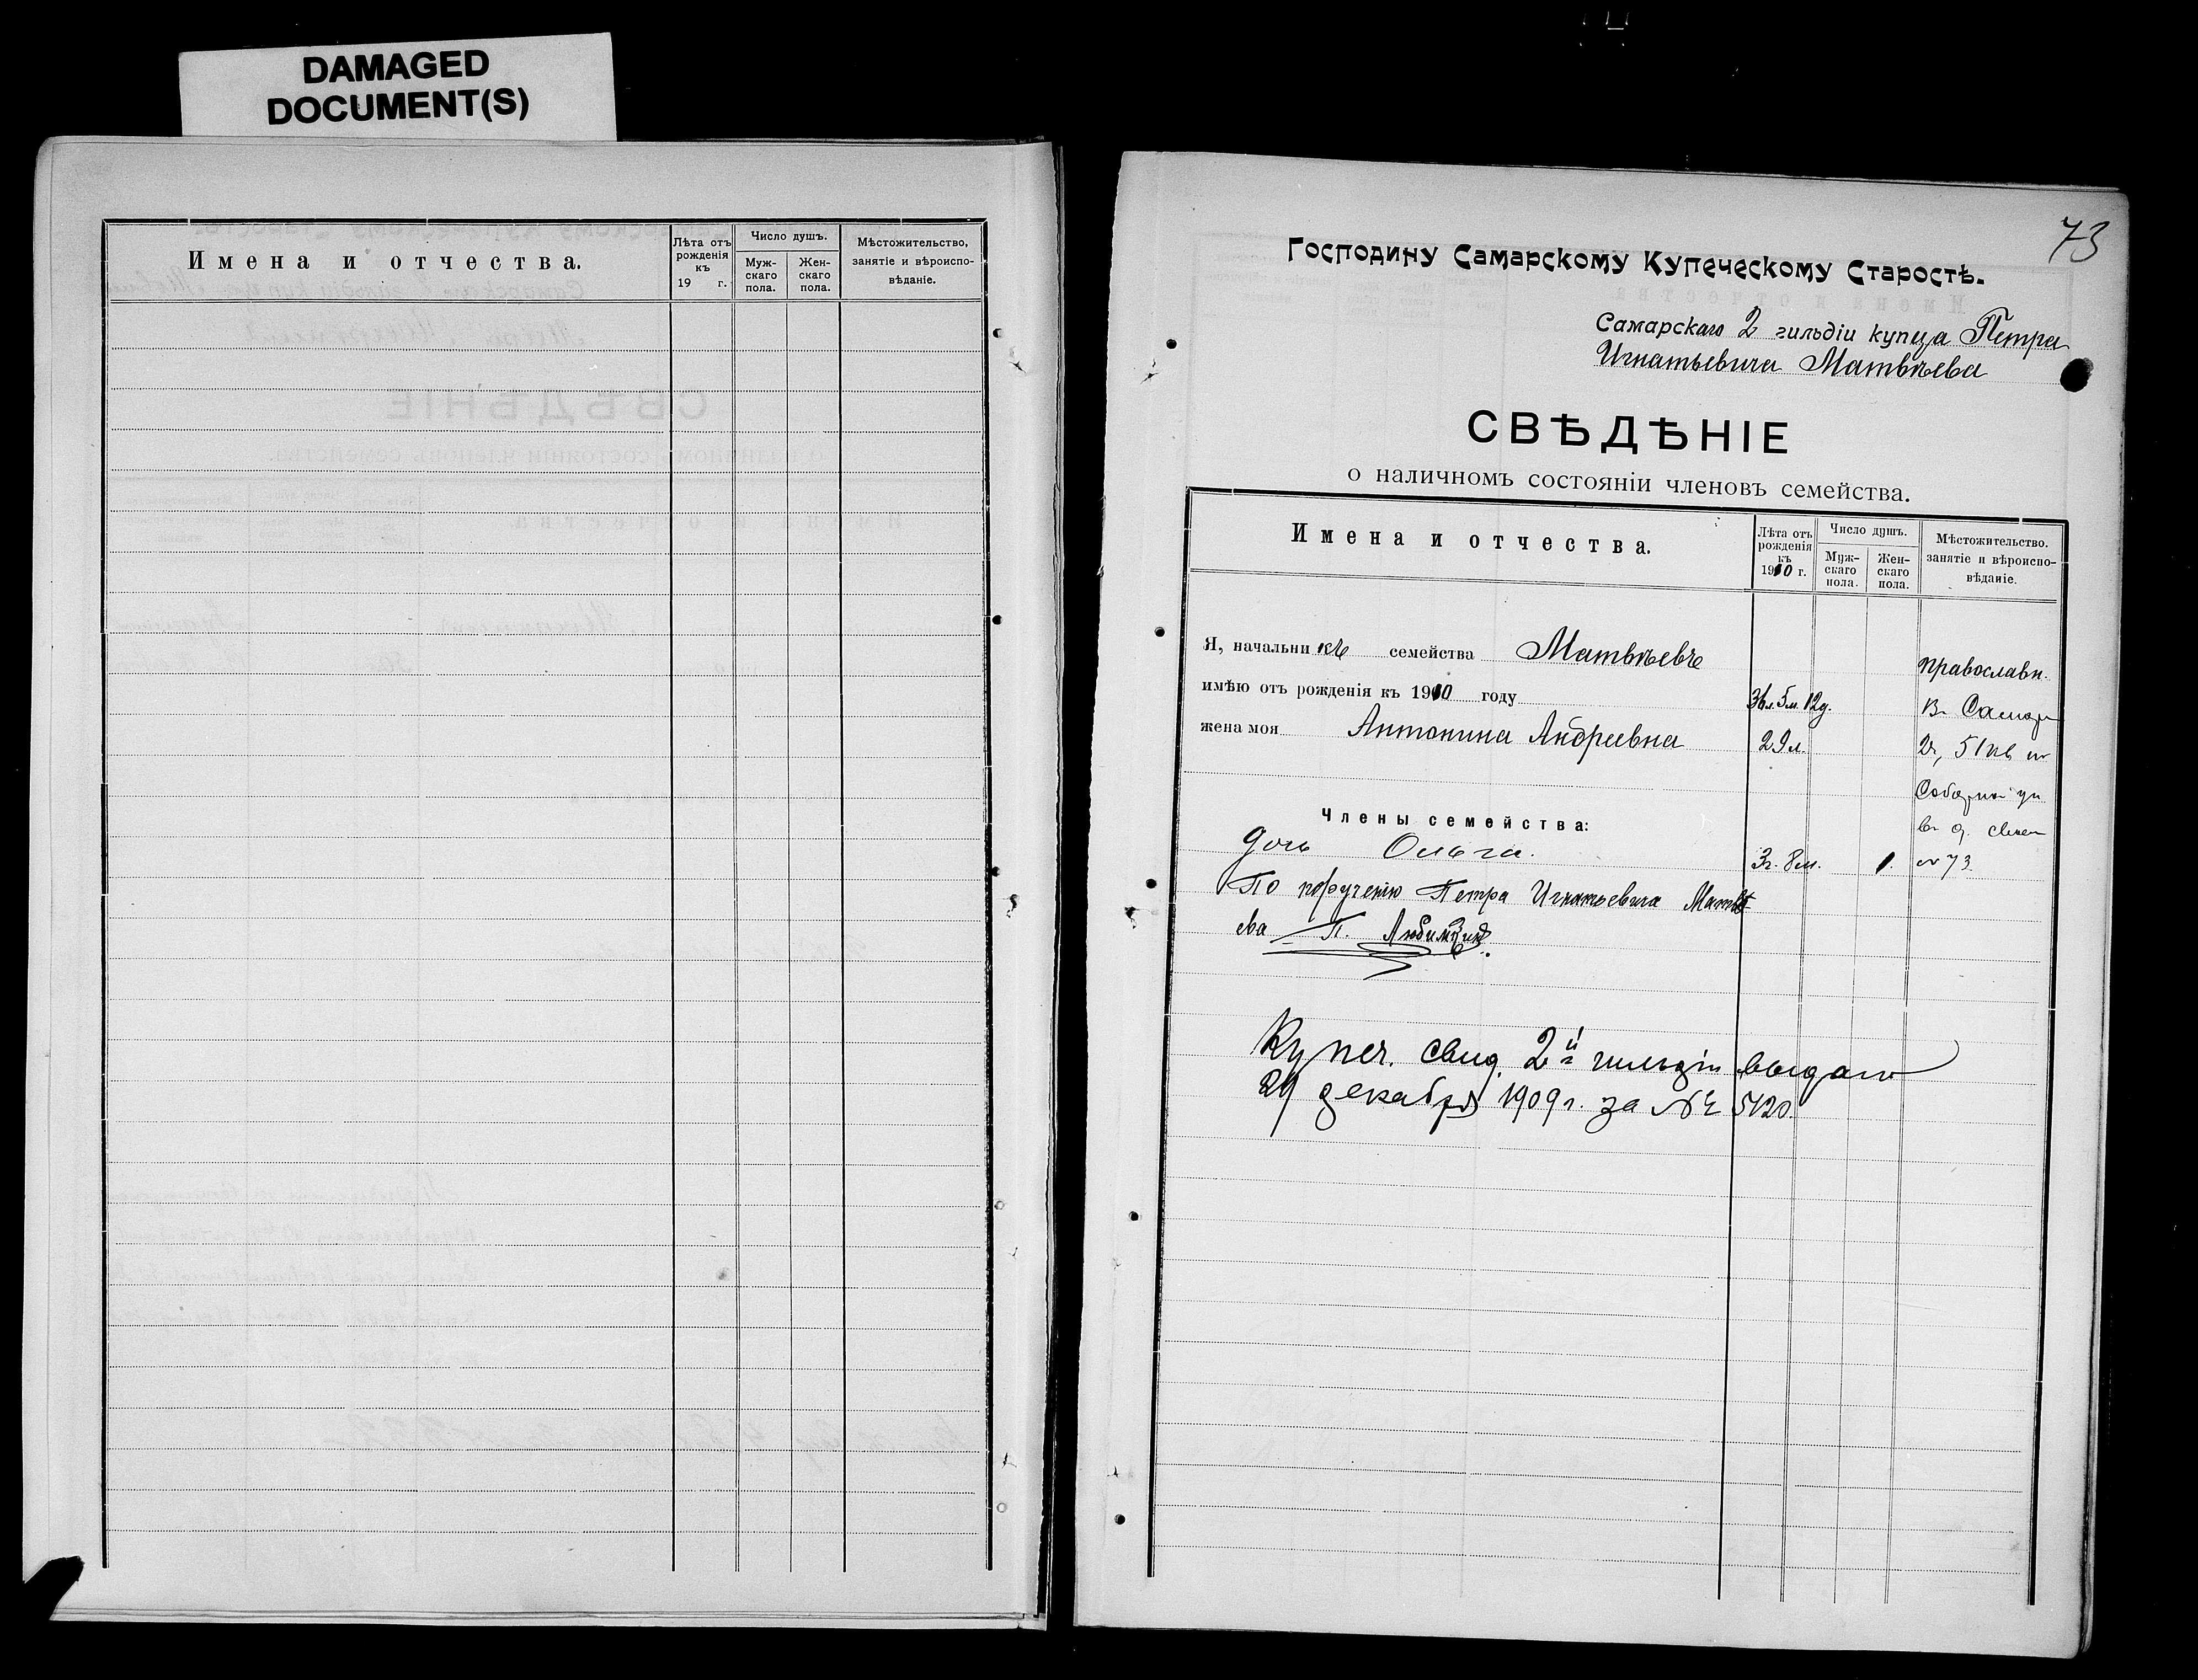 DAMAGED
DOCUMENT(S)
Имена и отчества.
Лѣта отъ
рожденія
къ
19 г.
Число душъ.
Муж-
скаго
пола.
Жен-
скаго
пола.
Мѣстожительство,
занятіе и вѣроиспо-
вѣданіе.
73
Господину Самарскому Купеческому Старостѣ.
Самарскаго 2 гильдіи купеца Петра
Игнатьевича Матвѣева
СВѢДѢНІЕ
о наличномъ состояніи членовъ семейства.
Имена и отчества.
Лѣта отъ
рожденія
къ
1910 г.
Число душъ.
Муж-
скаго
пола.
Жен-
скаго
пола.
Мѣстожительство.
занятіе и вѣроиспо-
вѣданіе.
Я, начальникъ семейства Матвѣевъ
православн.
имѣю отъ рожденія къ 1910 году 36л. 5м. 12д.
жена моя Антонина Андреевна 29л.
Члены семейства:
дочь Ольга. 3г. 8м. 1. № 73
По порученію Петра Игнатьевича Матвѣ
ева П.
Купеч. свид. 2й гильдіи выдано
29 декабря 1909 г. за № 5120.